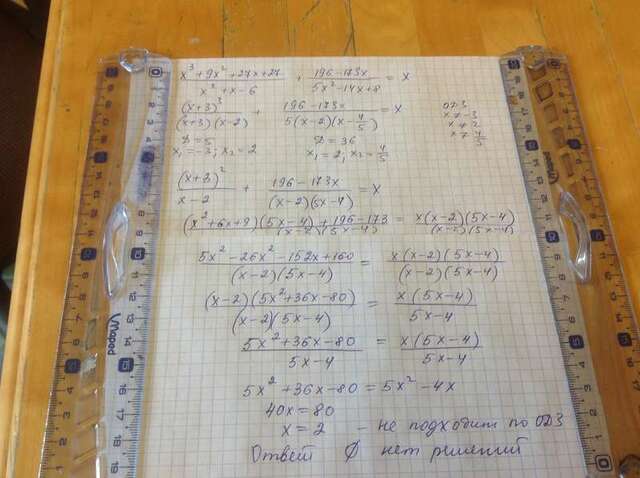 x³+9x²+27x+27 / x²+x-6 + 196-173x / 5x²-14x+8 = x
(x+3)³ / (x+3)(x-2) + 196-173x / 5(x-2)(x-4/5) = x
ОДЗ
x≠-3
x≠2
x≠4/5
D=5 D=36
x₁=-3; x₂=2 x₁=2; x₂=4/5
(x+3)² / x-2 + 196-173x / (x-2)(5x-4) = x
(x²+6x+9)(5x-4)+196-173 / (x-2)(5x-4) = x(x-2)(5x-4) / (x-2)(5x-4)
5x²-26x²-152x+160 / (x-2)(5x-4) = x(x-2)(5x-4) / (x-2)(5x-4)
(x-2)(5x²+36x-80) / (x-2)(5x-4) = x(5x-4) / 5x-4
5x²+36x-80 / 5x-4 = x(5x-4) / 5x-4
5x²+36x-80=5x²-4x
40x=80
x=2 - не подходит по ОДЗ
Ответ ∅ нет решений
Maped